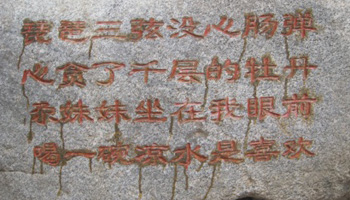 琵琶三弦没心肠弹
心贪了千层的牡丹
尕妹妹坐在我眼前
喝一碗凉水是喜欢